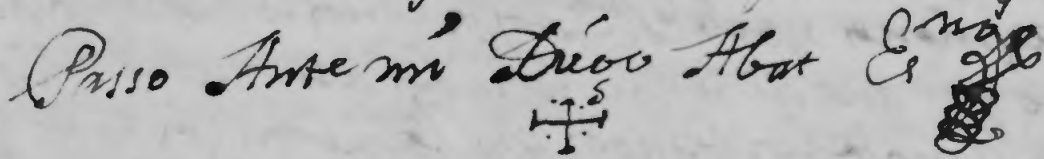 Passo Ante mi Diego Abat Es no